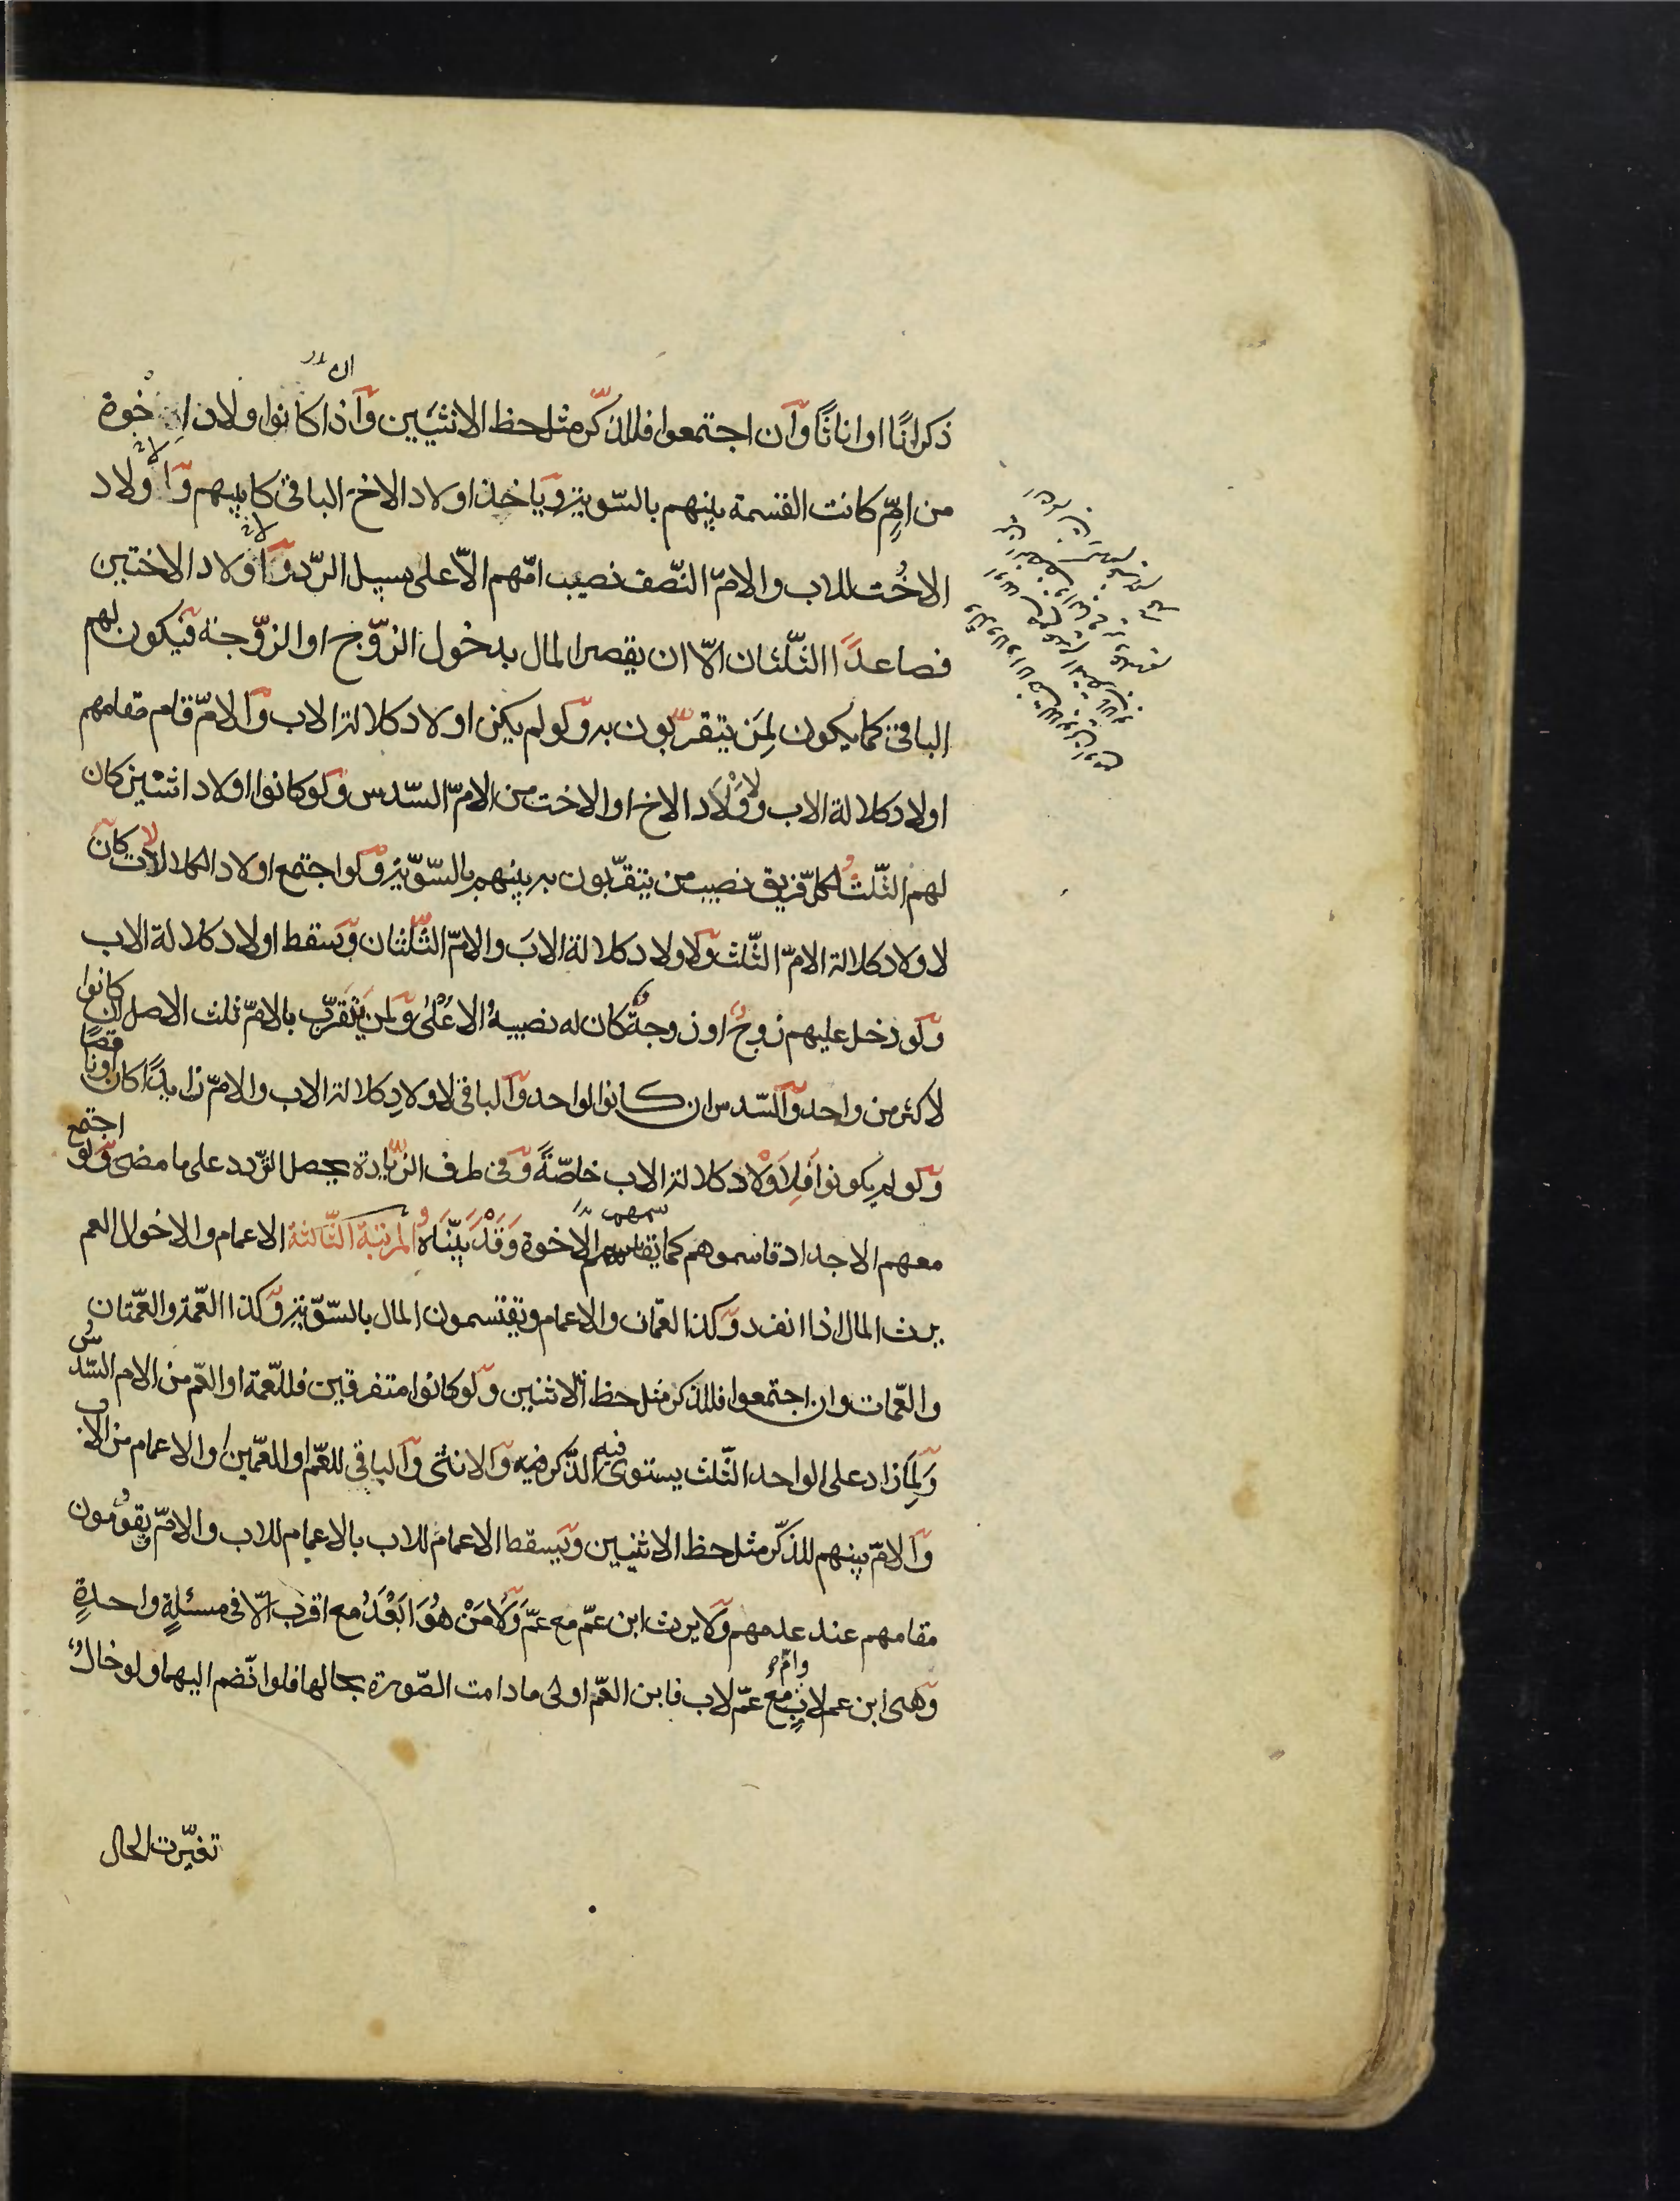 ذكرانًا او اناثًا وان اجتمعوا فللذكر مثل حظ الانثيين واذا كانوا اولاد اخوة
من امٍّ كانت القسمة بينهم بالسّوية وياخذ اولاد الاخ الباقى كابيهم واولاد
الاخت للاب والامّ النّصف نصيب امّهم الّا على سبيل الرّد واولاد الاختين
فصاعدًا الثّلثان الّا ان يقصر المال بدخول الزّوج او الزّوجة فيكون لهم
الباقى كما يكون لِمَن يتقرّبون به ولو لم يكن اولاد كلالة الاب والامّ قام مقامهم
اولاد كلالة الاب ولِاَوْلَاد الاخ او الاخت من الامّ السّدس ولو كانوا اولاد اثنين كان
لهم الثّلثُ لكلّ فريق نصيب من يتقرّبون به بينهم بالسّويّة ولو اجتمع اولاد الكلالات كان
لاولاد كلالة الامّ الثّلث ولاولاد كلالة الاب والامّ الثّلثان وسقط اولاد كلالة الاب
ولو دخل عليهم زوجٌ او زوجةٌ كان له نصيبهُ الاعْلىٰ ولمن يَتَقرّب بالامّ ثلث الاصل ان كانوا
لاكثر من واحد والسّدس ان كانوا لواحد والباقى لاولادِ كلالة الاب والامّ زايدًا كان او ناقصًا
ولو لم يكونوا فلِاَوْلاد كلالة الاب خاصّةً وفى طرف الزّيادة يحصل التّردد على ما مضى ولو اجتمع
معهم الاجداد قاسموهم كما يقاسمهم الاخوة وَقَدْ بيّنّاهُ المرتبة الثّالثة الاعمام والاخوال العم
يرث المال اذا انفرد وكذا العمّان والاعمام ويقتسمون المال بالسّويّة وكذا العّمة والعّمتان
والعّمات وان اجتمعوا فللذكر مثل حظ الانثيين ولو كانوا متفرقين فللعّمة او العّم من الام السّدسُ
وَلِمَا زاد على الواحد الثّلث يستوى فيه الذّكر فيه والانثى والباقى للعّم او للعّمين او الاعمام من الاب
والامّ بينهم للذكر مثل حظ الانثيين ويسقط الاعمام للاب بالاعمام للاب والامّ ويقومُون
مقامهم عند عدمهم ولا يرث ابن عمّ مع عمّ وَلَا مَنْ هُوَ اَبْعَدُ مع اقرب الّا فى مسئلةٍ واحدةٍ
وهى ابن عم لابٍ وامٍّ مع عمّ لاب فابن العّم اولى ما دامت الصّورة بحالها فلو انضم اليهما ولو خالٌ
تغيّرت الحال